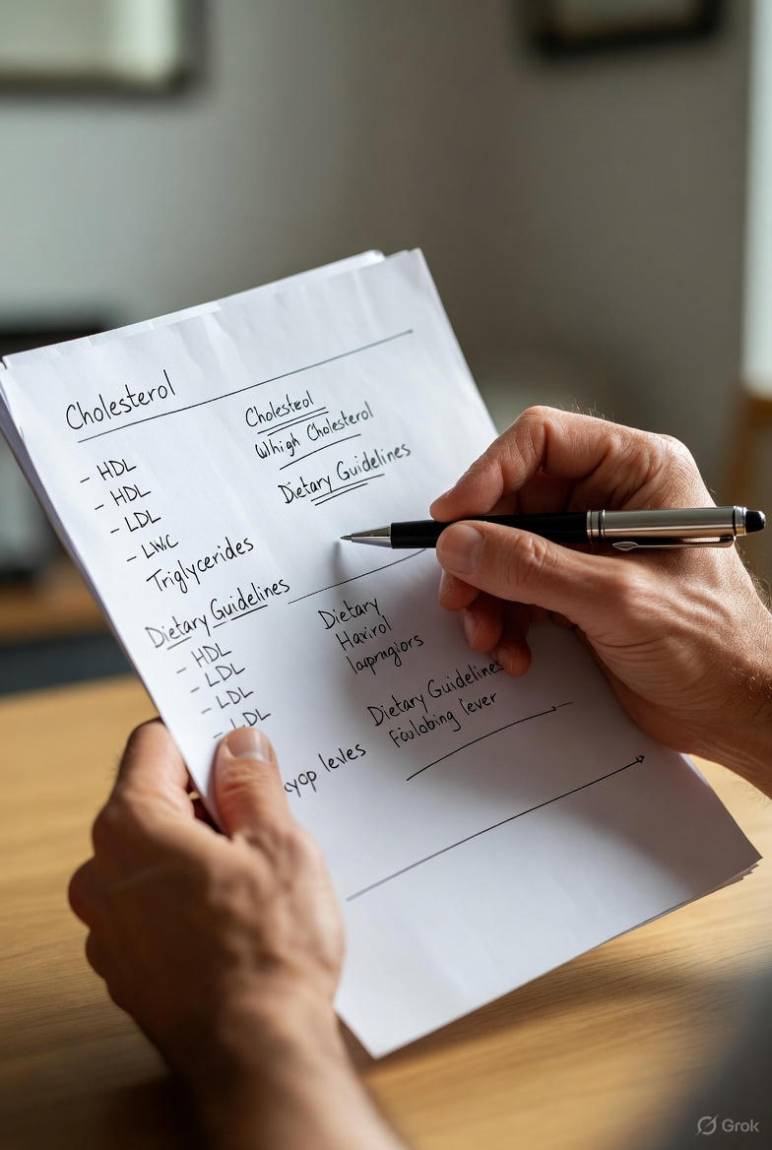 Cholesterol
- HDL
- HDL
- LDL
- LWC
Triglycerides
Dietary Guidelines
- HDL
- LDL
- LDL
- LDL
yop leves
Cholesteol
Whigh Cholesterol
Dietary Guidelines
Dietary
Havirol
Dietary Guidelines
lever
Grok